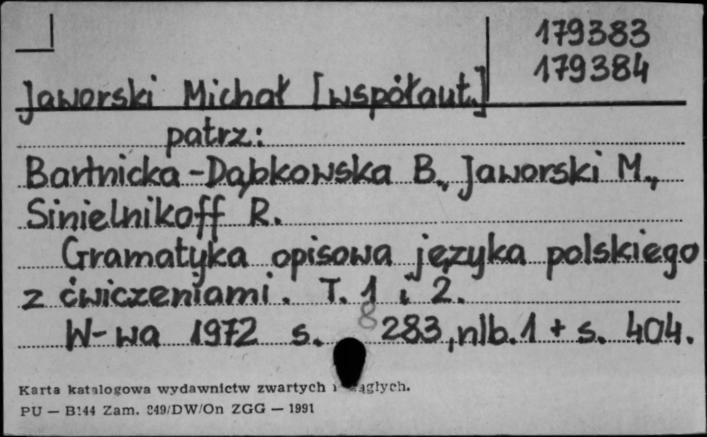 179383
179384
Jaworski Michał [współaut.]
patrz:
Bartnicka-Dąbkowska B., Jaworski M.,
Sinielnikoff R.
Gramatyka opisowa języka polskiego
z ćwiczeniami. T. 1 i 2.
W-wa 1972 s. 8 283, nlb. 1 + s. 404.
Karta katalogowa wydawnictw zwartych i ciągłych.
PU — B144 Zam. 849/DW/On ZGG — 1991